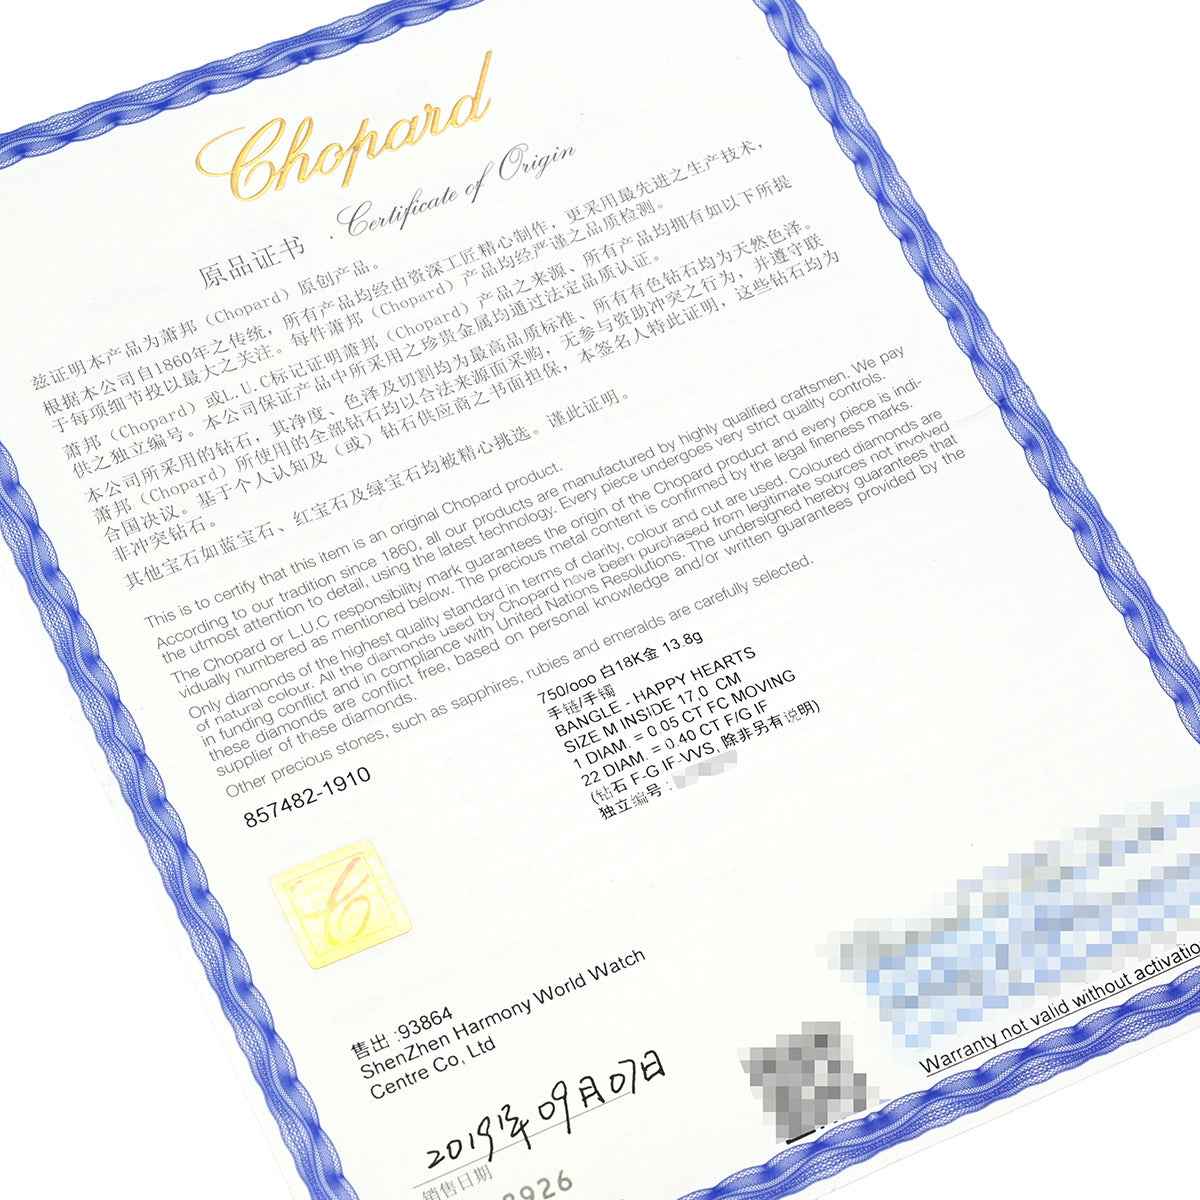 Chopard
Certificate of Origin
原品证书
兹证明本产品为萧邦（Chopard）原创产品。
根据本公司自1860年之传统，所有产品均经由资深工匠精心制作，更采用最先进之生产技术，
于每项细节投以最大之关注。每件萧邦（Chopard）产品均经严谨之品质检测。
萧邦（Chopard）或L.U.C标记证明萧邦（Chopard）产品之来源、所有产品均拥有如以下所提
供之独立编号。本公司保证产品中所采用之珍贵金属均通过法定品质认证。
本公司所采用的钻石，其净度、色泽及切割均为最高品质标准、所有有色钻石均为天然色泽。
萧邦（Chopard）所使用的全部钻石均以合法来源面采购，无参与资助冲突之行为，并遵守联
合国决议。基于个人认知及（或）钻石供应商之书面担保，本签名人特此证明，这些钻石均为
非冲突钻石。
其他宝石如蓝宝石、红宝石及绿宝石均被精心挑选。谨此证明。
This is to certify that this item is an original Chopard product.
According to our tradition since 1860, all our products are manufactured by highly qualified craftsmen. We pay
the utmost attention to detail, using the latest technology. Every piece undergoes very strict quality controls.
The Chopard or L.U.C responsibility mark guarantees the origin of the Chopard product and every piece is indi-
vidually numbered as mentioned below. The precious metal content is confirmed by the legal fineness marks.
Only diamonds of the highest quality standard in terms of clarity, colour and cut are used. Coloured diamonds are
of natural colour. All the diamonds used by Chopard have been purchased from legitimate sources not involved
in funding conflict and in compliance with United Nations Resolutions. The undersigned hereby guarantees that
these diamonds are conflict free, based on personal knowledge and/or written guarantees provided by the
supplier of these diamonds.
Other precious stones, such as sapphires, rubies and emeralds are carefully selected.
857482-1910
750/ooo 白18K金 13.8g
手链/手镯
BANGLE - HAPPY HEARTS
SIZE M INSIDE 17,0 CM
1 DIAM. = 0.05 CT FC MOVING
22 DIAM. = 0.40 CT F/G IF
(钻石 F-G IF-VVS, 除非另有说明)
独立编号 :
售出 :93864
ShenZhen Harmony World Watch
Centre Co, Ltd
2019年09月07日
销售日期
Warranty not valid without activatio